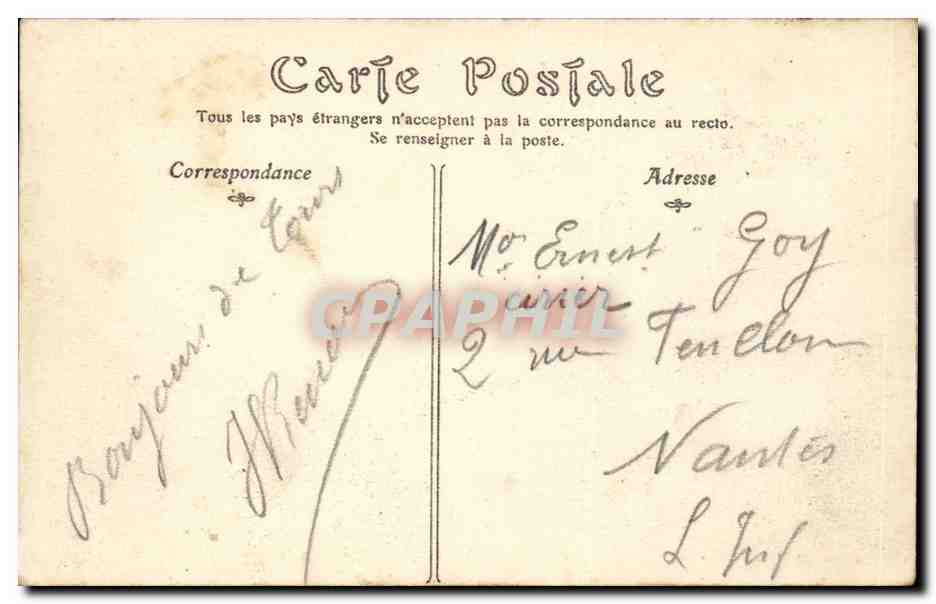 Carte Postale
Tous les pays étrangers n'acceptent pas la correspondance au recto.
Se renseigner à la poste.
Correspondance
Bonjour de Tours
Adresse
Mo. Ernest Goy
cirier
2 rue Fenelon
Nantes
L. Inf
CPAPHIL